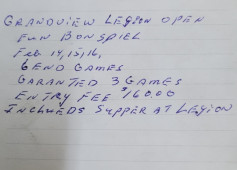 GRANDVIEW LEGION OPEN
FUN BONSPIEL
Feb 14,15,16,
6 END GAMES
GARANTED 3 GAMES
ENTRY FEE $160.00
INCLUEDS SUPPER AT LEGION